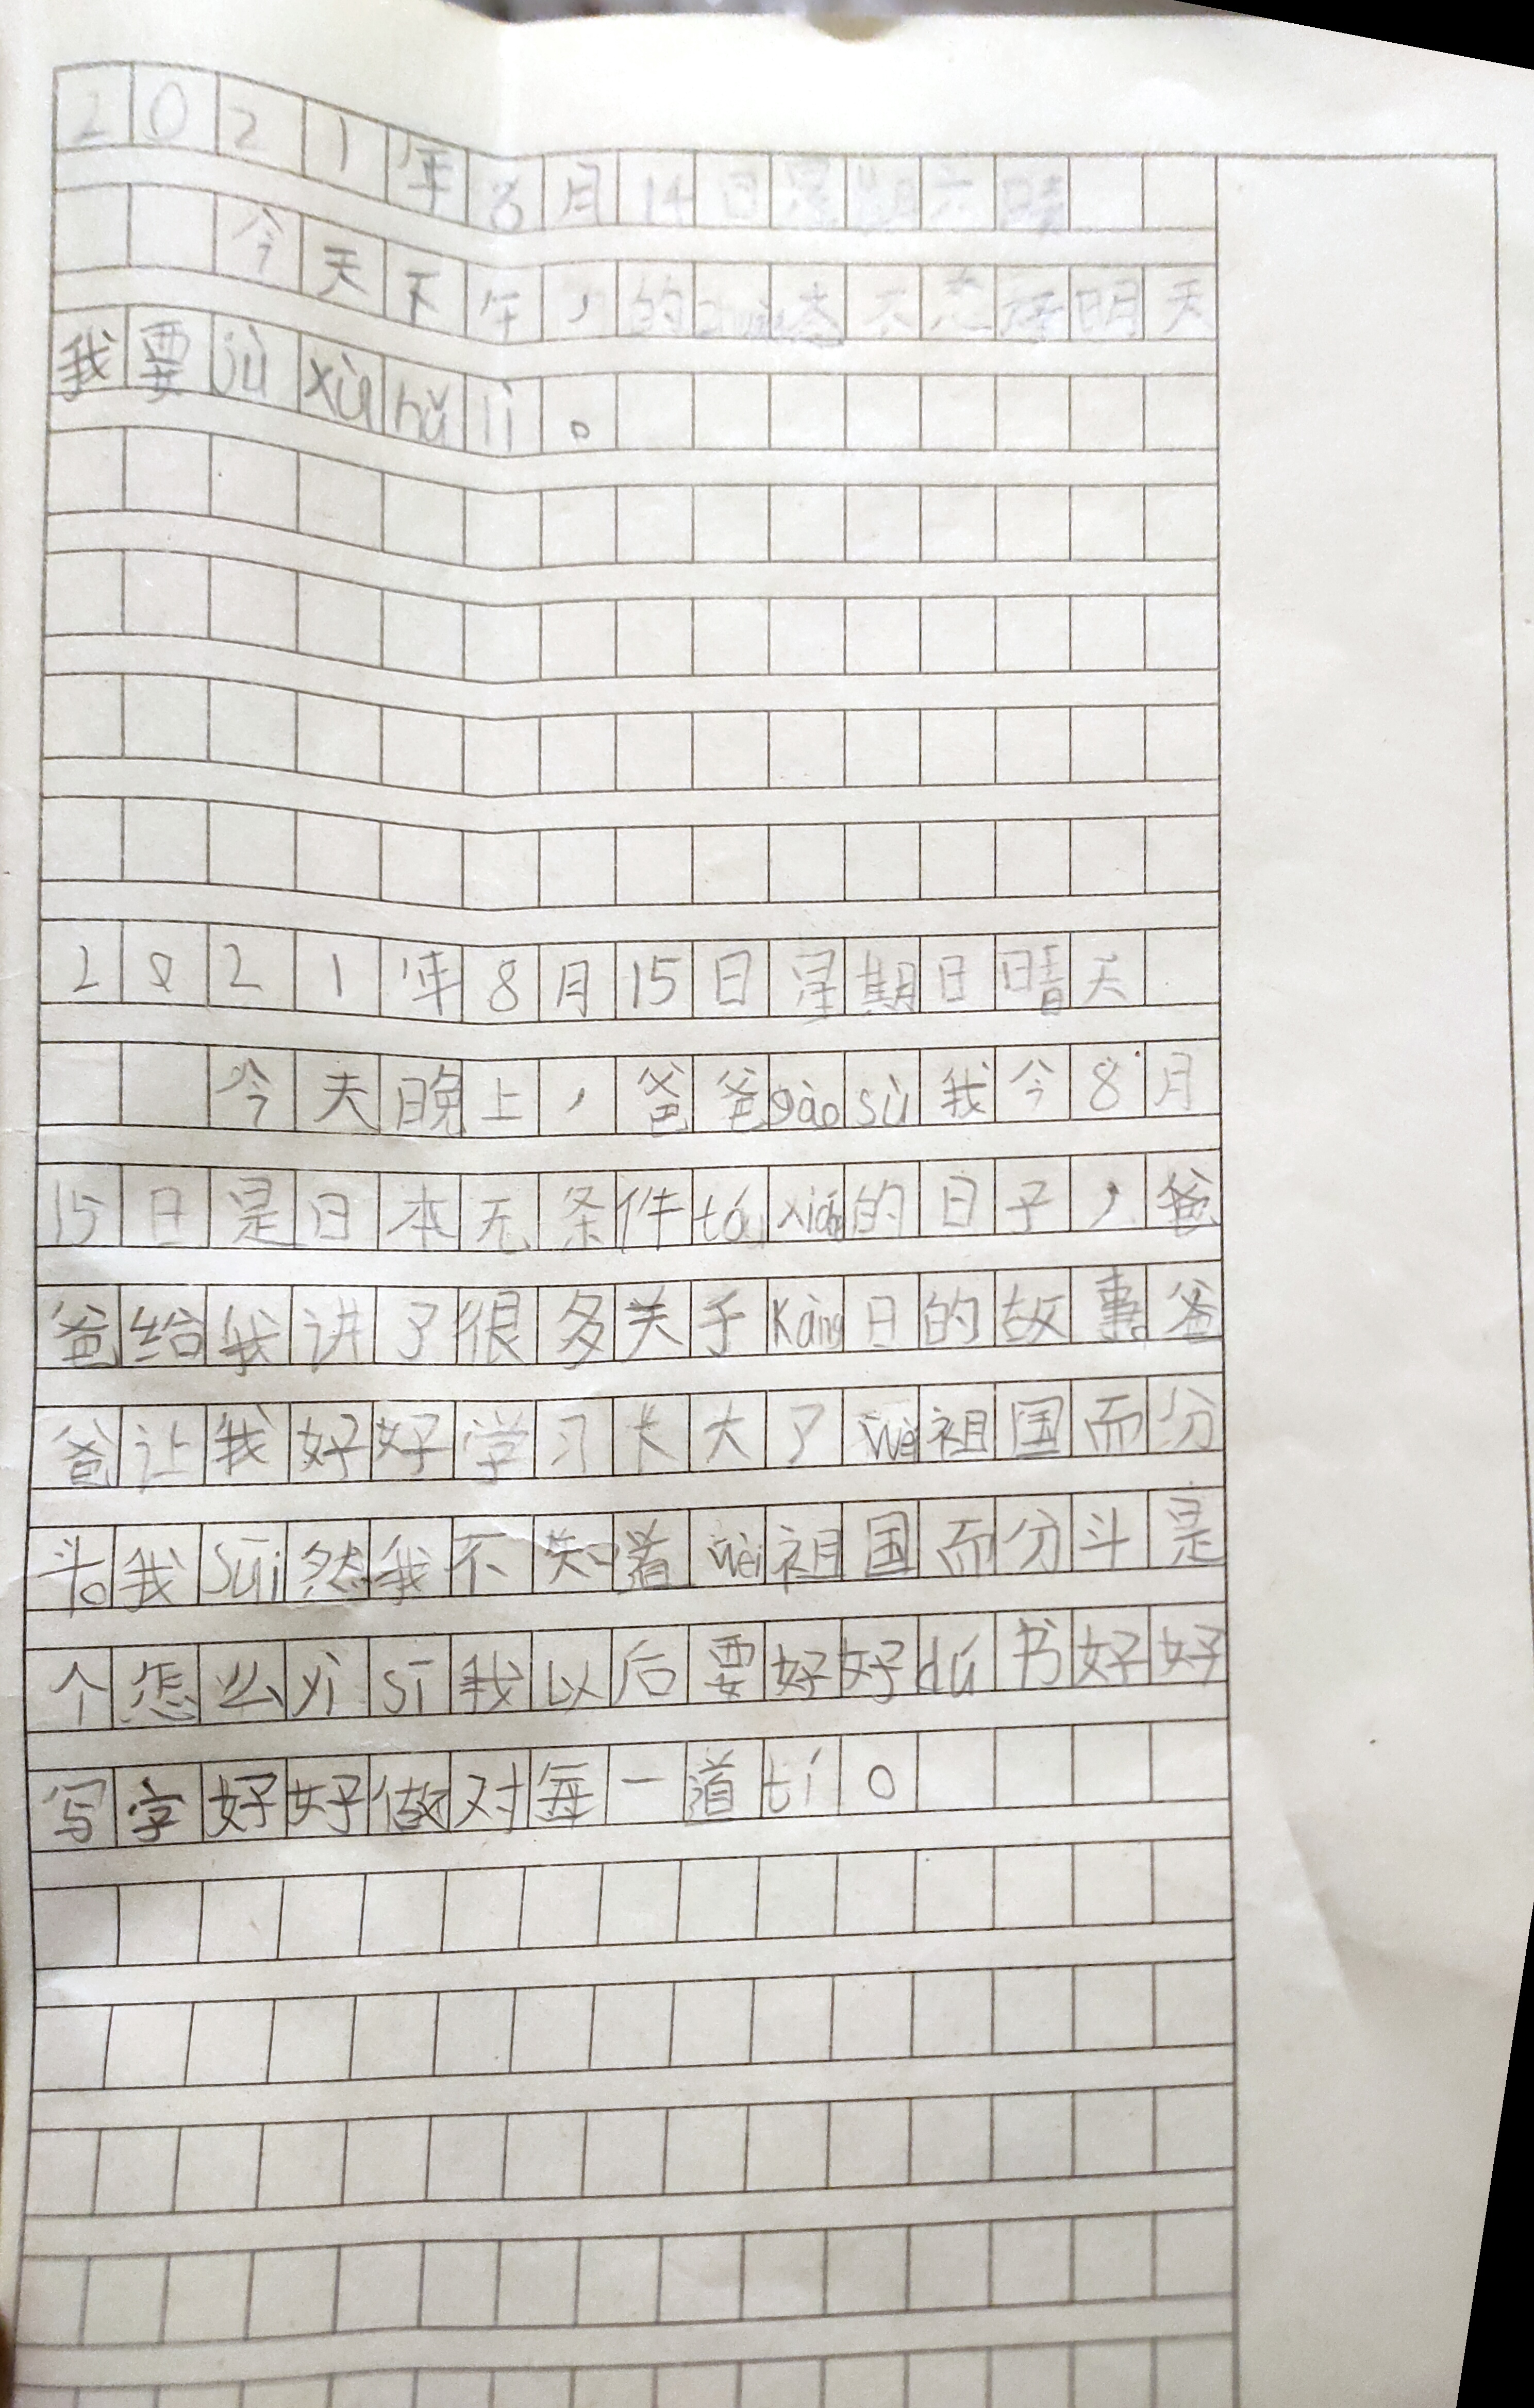 2021年8月14日星期六晴
今天下午,的zhuàng态不怎样明天
我要jìxùnǔlì。
2021年8月15日星期日晴天
今天晚上,爸爸gàosù我今8月
15日是日本无条件tóuxiáng的日子,爸
爸给我讲了很多关于Kàng日的故事。爸
爸让我好好学习长大了wèi祖国而分
斗。我Suī然我不知道wèi祖国而分斗是
个怎么yìsī我以后要好好dú书好好
写字好好做对每一道tí。